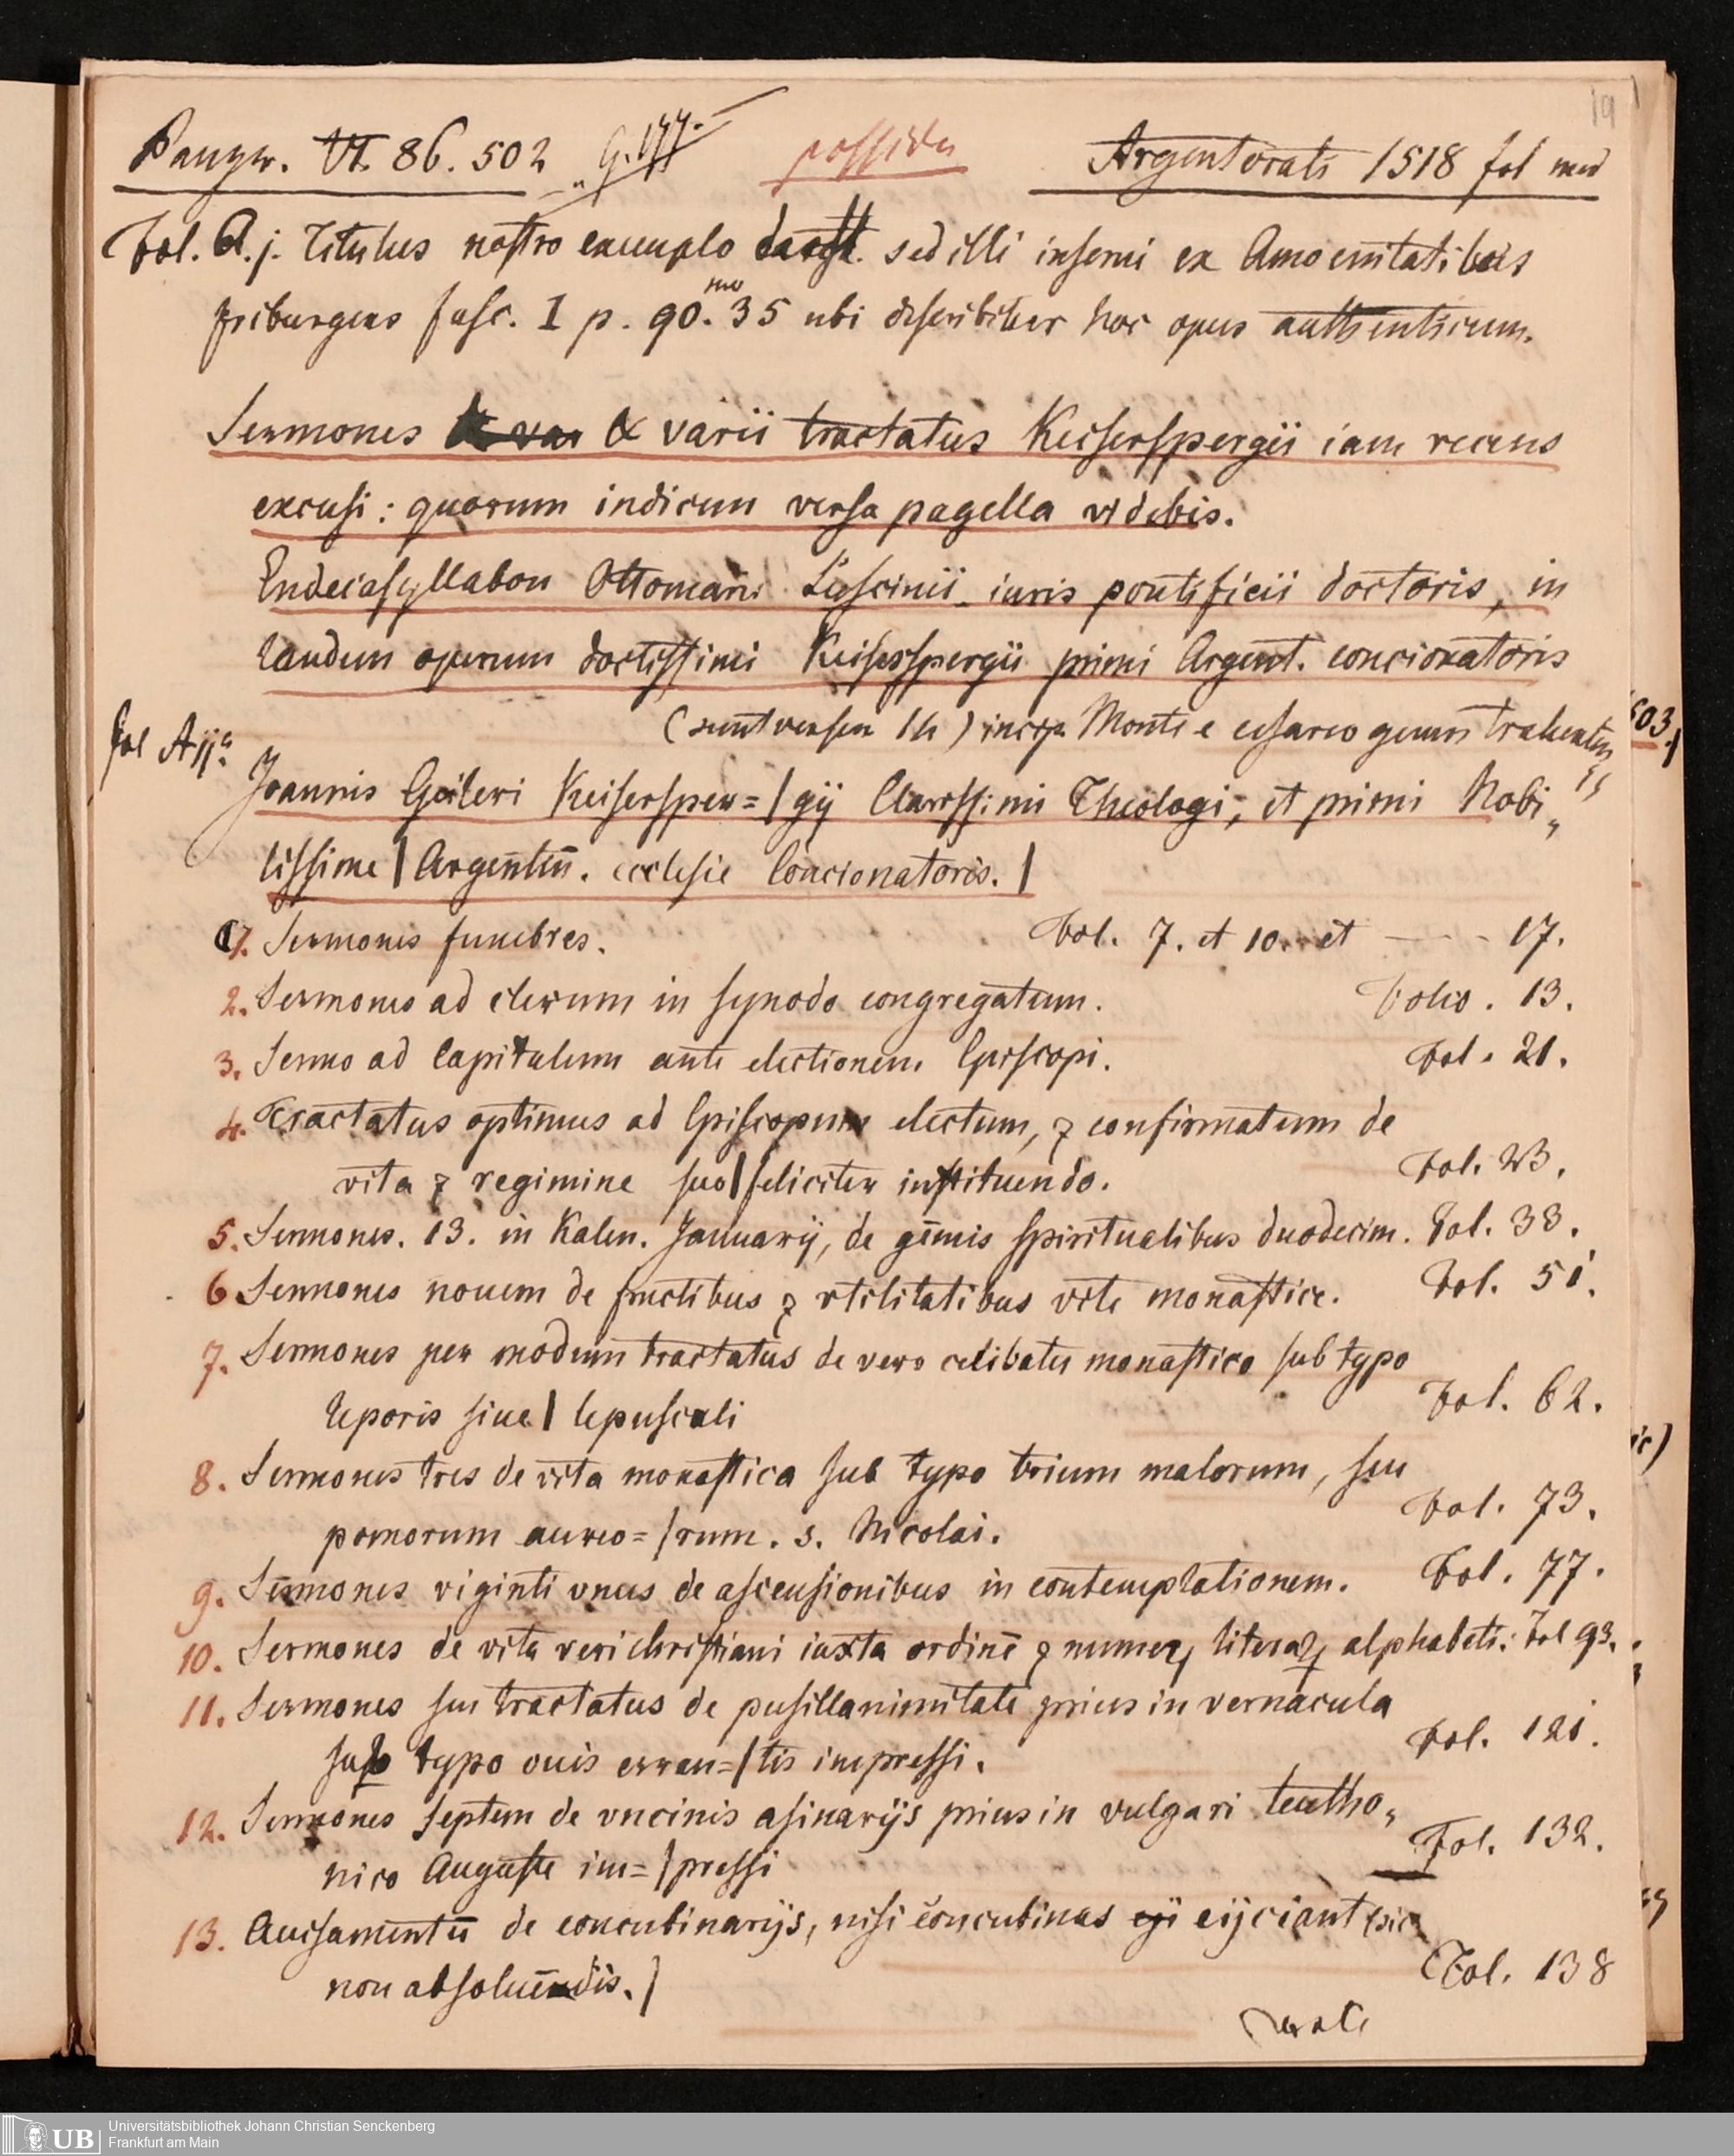 19
Panzer. VI. 86. 502 G. 177. possideo Argentorati 1518 fol
Fol. A.j. Titulus nostro exemplo deest. sed illi inserui ex Amoenitatibus
friburgens fasc. I p. 90. no 35 ubi describitur hoc opus authenticum.
Sermones & var & varii tractatus Keiserspergii iam recens
excusi: quorum indicem versa pagella videbis.
Endecasyllabon Ottomari Luscinii iuris pontificii doctoris, in
laudem operum doctissimi Keiserspergii primi Argent. concionatoris
(sunt versus 14) incip. Monte e cesareo genus trahentis
fol Aija
Joannis Geileri Keisersper=|gij Clarissimi Theologi, et primi Nobi„
lissime | Argentin. ecclesie Concionatoris. |
1. Sermones funebres. Fol. 7. et 10. et - - - 17.
2. Sermones ad clerum in synodo congregatum. Folio. 13.
3. Sermo ad Capitulum ante electionem Episcopi. Fol. 21.
4. Tractatus optimus ad Episcopum electum, ⁊ confirmatum de
vita ⁊ regimine suo | feliciter instituendo. Fol. 23.
5. Sermones. 13. in Kalen. Januarij, de gēmis spiritualibus duodecim. Fol. 33.
6 Sermones nouem de fructibus ⁊ vtilitatibus vite monastice. Fol. 51.
7. Sermones per modum tractatus de vero celibatu monastico sub typo
leporis siue | lepusculi Fol. 62.
8. Sermones tres de vita monastica sub typo trium malorum, seu
pomorum aureo=|rum. s. Nicolai. Fol. 73.
9. Sermones viginti vnus de ascensionibus in contemplationem. Fol. 77.
10. Sermones de vita veri christiani iuxta ordinē ⁊ numerū literaꝝ alphabeti. Fol 93.
11. Sermones seu tractatus de pusillanimitate prius in vernacula
sub typo ouis erran=|tis impressi. Fol. 121.
12. Sermones septem de vncinis asinarijs prius in vulgari teutho„
nico Auguste im=|pressi Fol. 132.
13. Auisamentū de concubinarijs, nisi concubinas eji eijciant (sic
non absoluēndis. | Fol. 138
Universitätsbibliothek Johann Christian Senckenberg
Frankfurt am Main
UB